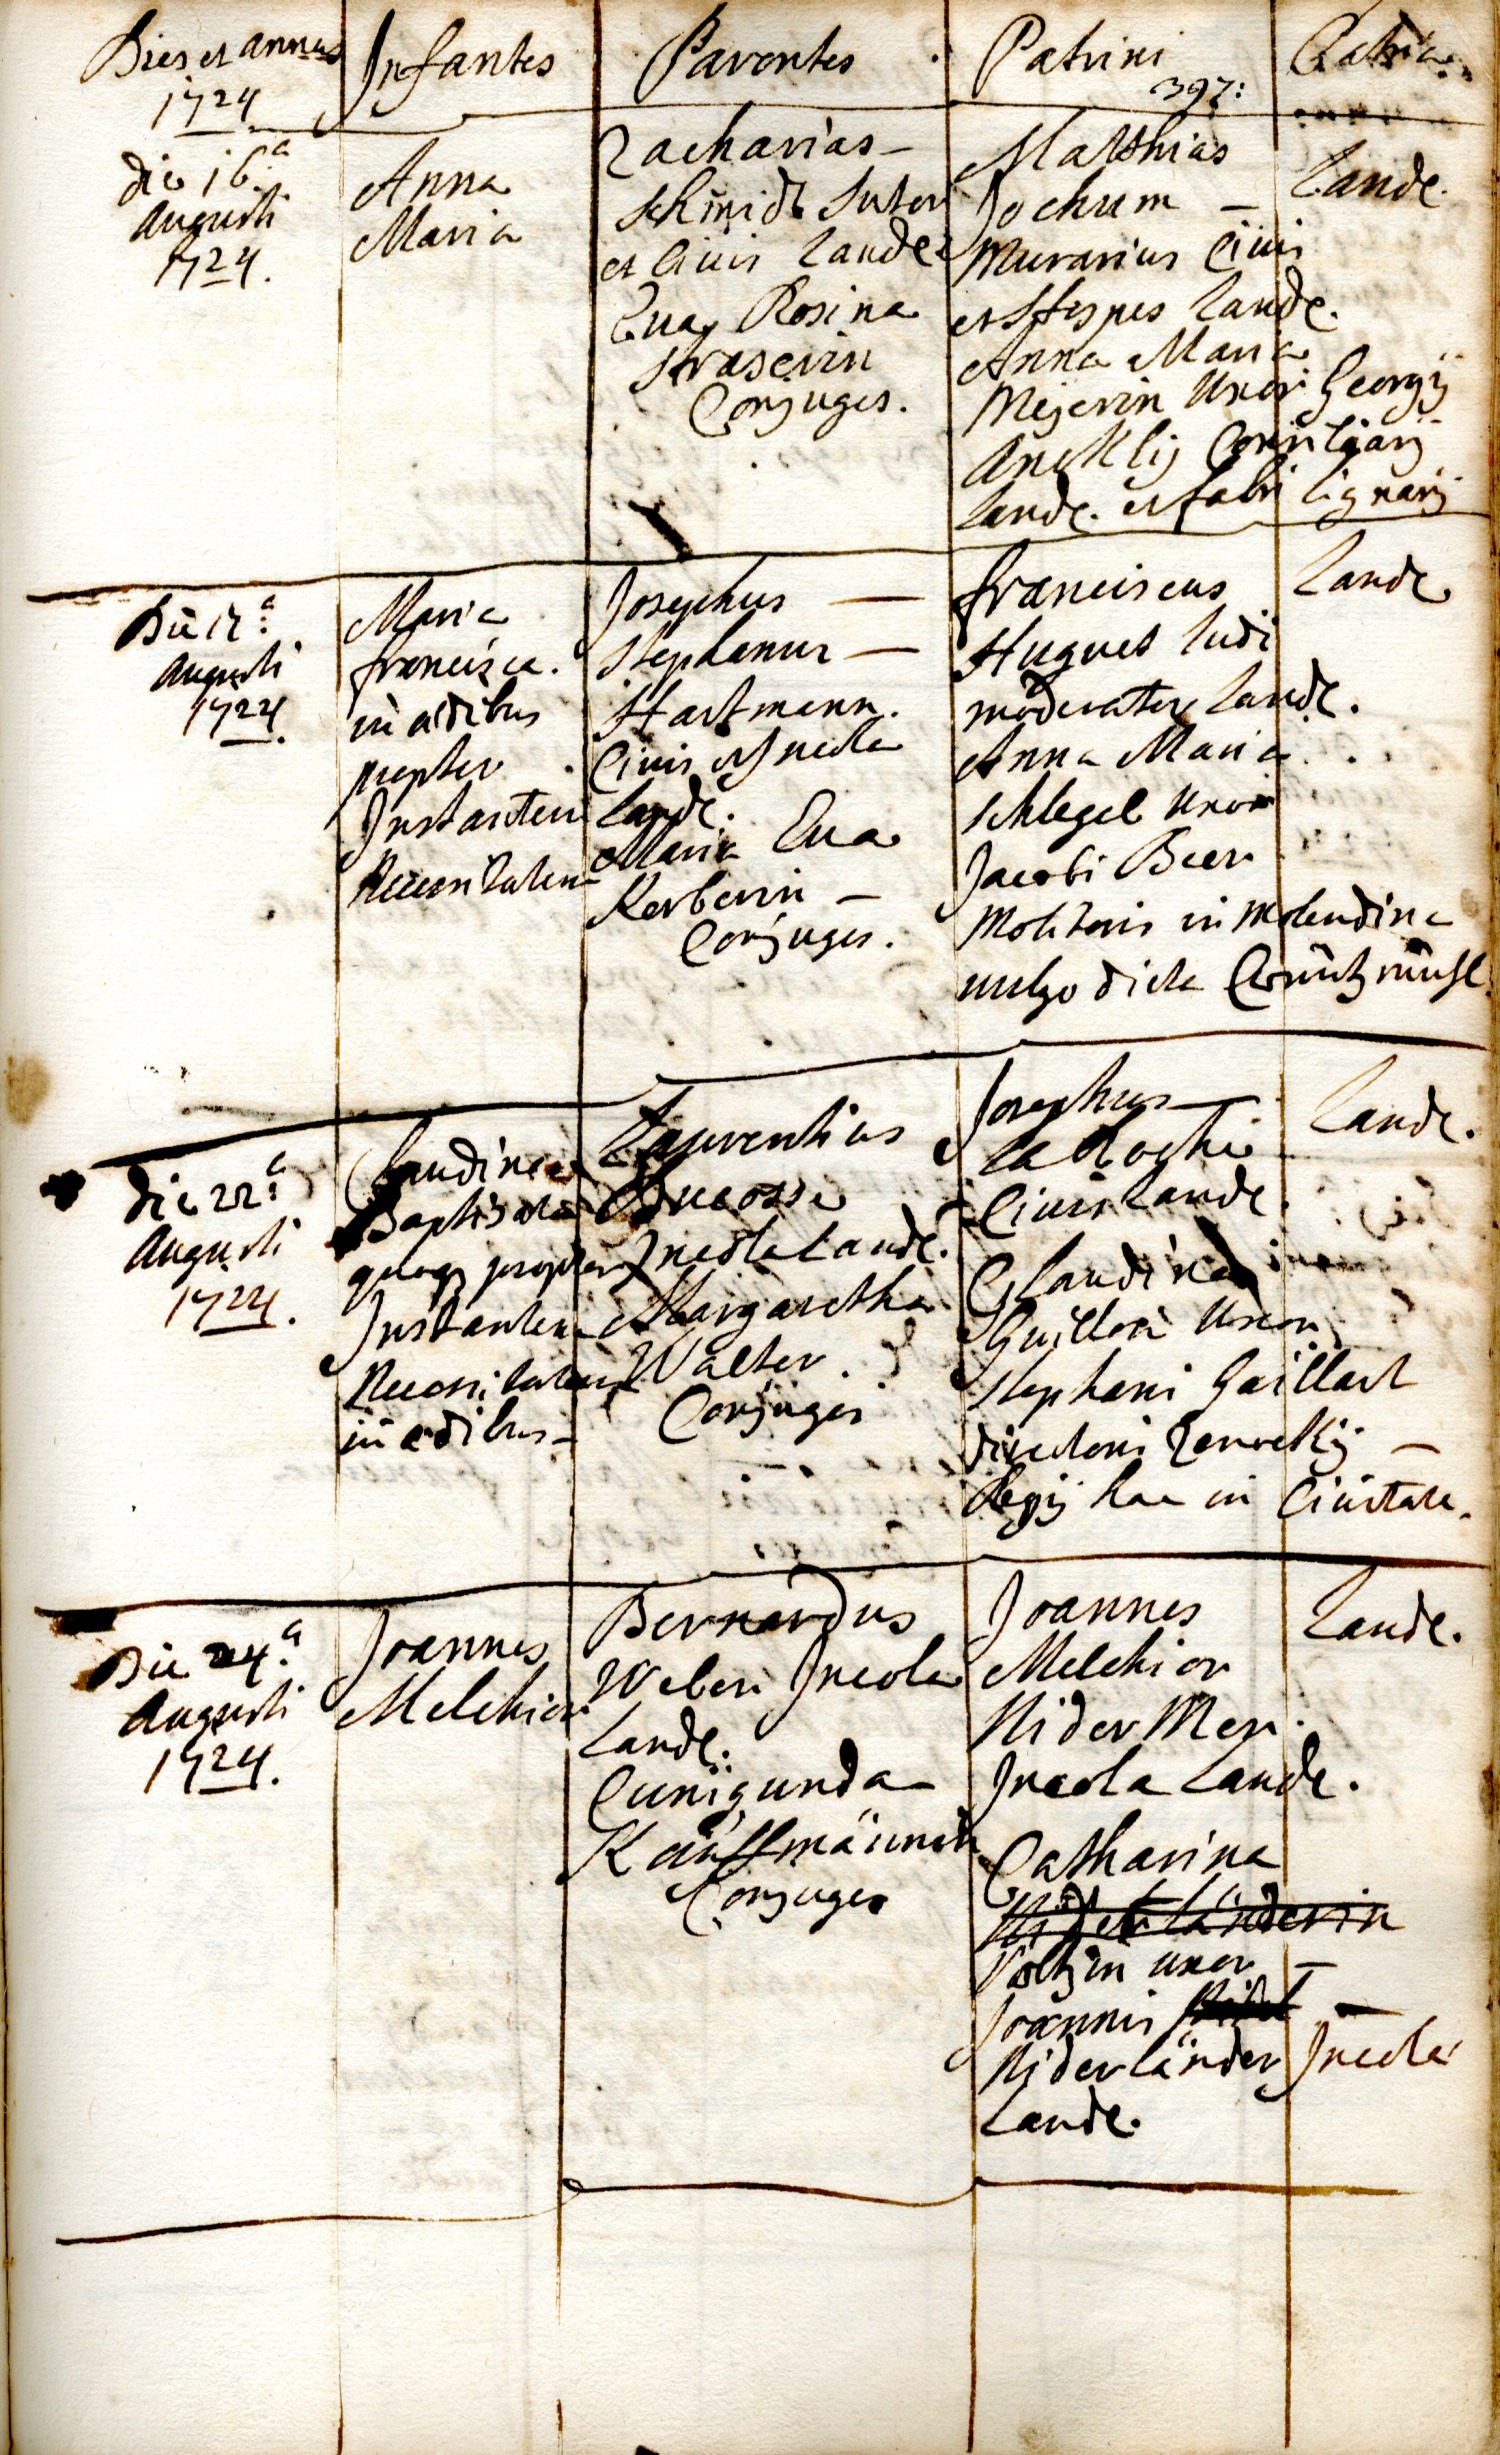 Dies et annus
1724
Infantes
Parentes
Patrini
397:
Patria
die 16.a
Augusti
1724.
Anna
Maria
Zacharias –
Schmidt Sutor
et Civis Landę
Eva Rosina
Straserin
Conjuges.
Matthias
Jochum –
Murarius Civis
et Hospes Landę.
Anna Maria
Meyerin Uxor Georgij
Ancklij Consiliarij
Landę. et fabri lignarij
Landę.
Die 17.a
Augusti
1724.
Maria
francisca.
in ædibus
propter
Instantem
Necessitatem
Josephus –
Stephanus –
Hartmann.
Civis et Incola
Landę.
Maria Eva
Kerberin –
Conjuges.
franciscus
Huguet ludi
moderator Landę.
Anna Maria
Schlegel Uxor
Jacobi Beer
Molitoris in Molendina
vulgo dicta
Landę
die 22.a
Augusti
1724.
Claudina
Baptizata
quoq; propter
Instantem
Necessitatem
in ædibus –
Laurentius
Ducosse
Incola Landę.
Margaretha
Walter.
Conjuges
Josephus –
la Roche
Civis Landę.
Claudina
Guillon Uxor
Stephani Gaillart
directoris –
Regij hac in Civitate.
Landę.
Die 24.a
Augusti
1724.
Joannes
Melchior
Bernardus
Weber Incola
Landę.
Cunigunda
Kauffmännin
Conjuges
Joannes
Melchior
NiderMer.
Incola Landę.
Catharina
Niderländerin
Voltzin uxor –
Joannis –
Niderländer Incola
Landę.
Landę.